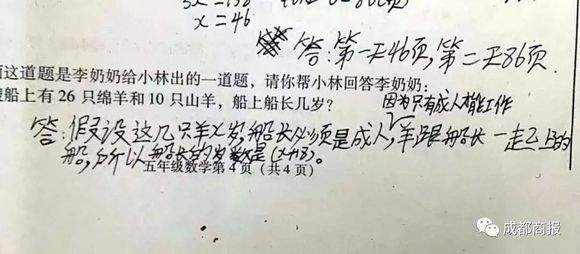 x=46
答:第一天46页,第二天86页.
面这道题是李奶奶给小林出的一道题,请你帮小林回答李奶奶:
艘船上有 26 只绵羊和 10 只山羊,船上船长几岁?
因为只有成人才能工作
答:假设这几只羊x岁,船长必须是成人,羊跟船长一起上的
船,所以船长的岁数是(x+18)。
五年级数学第 4 页(共 4 页)
成都商报